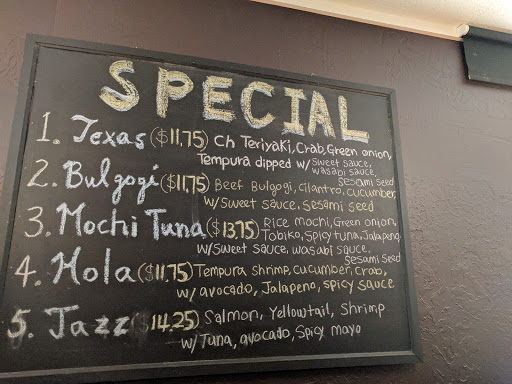 SPECIAL
1. Texas ($11.75) Ch Teriyaki, Crab, Green onion,
Tempura dipped w/ sweet sauce,
wasabi sauce,
sesami seed
2. Bulgogi ($11.75) Beef Bulgogi, cilantro, cucumber,
w/sweet sauce, sesami seed
3. Mochi Tuna ($13.75) Rice mochi, Green onion,
Tobiko, spicy tuna, Jalapeno,
w/sweet sauce, wasabi sauce,
sesami seed
4. Hola ($11.75) Tempura shrimp, cucumber, crab,
w/ avocado, Jalapeno, spicy sauce
5. Jazz ($14.25) Salmon, Yellowtail, Shrimp
w/ Tuna, avocado, Spicy mayo